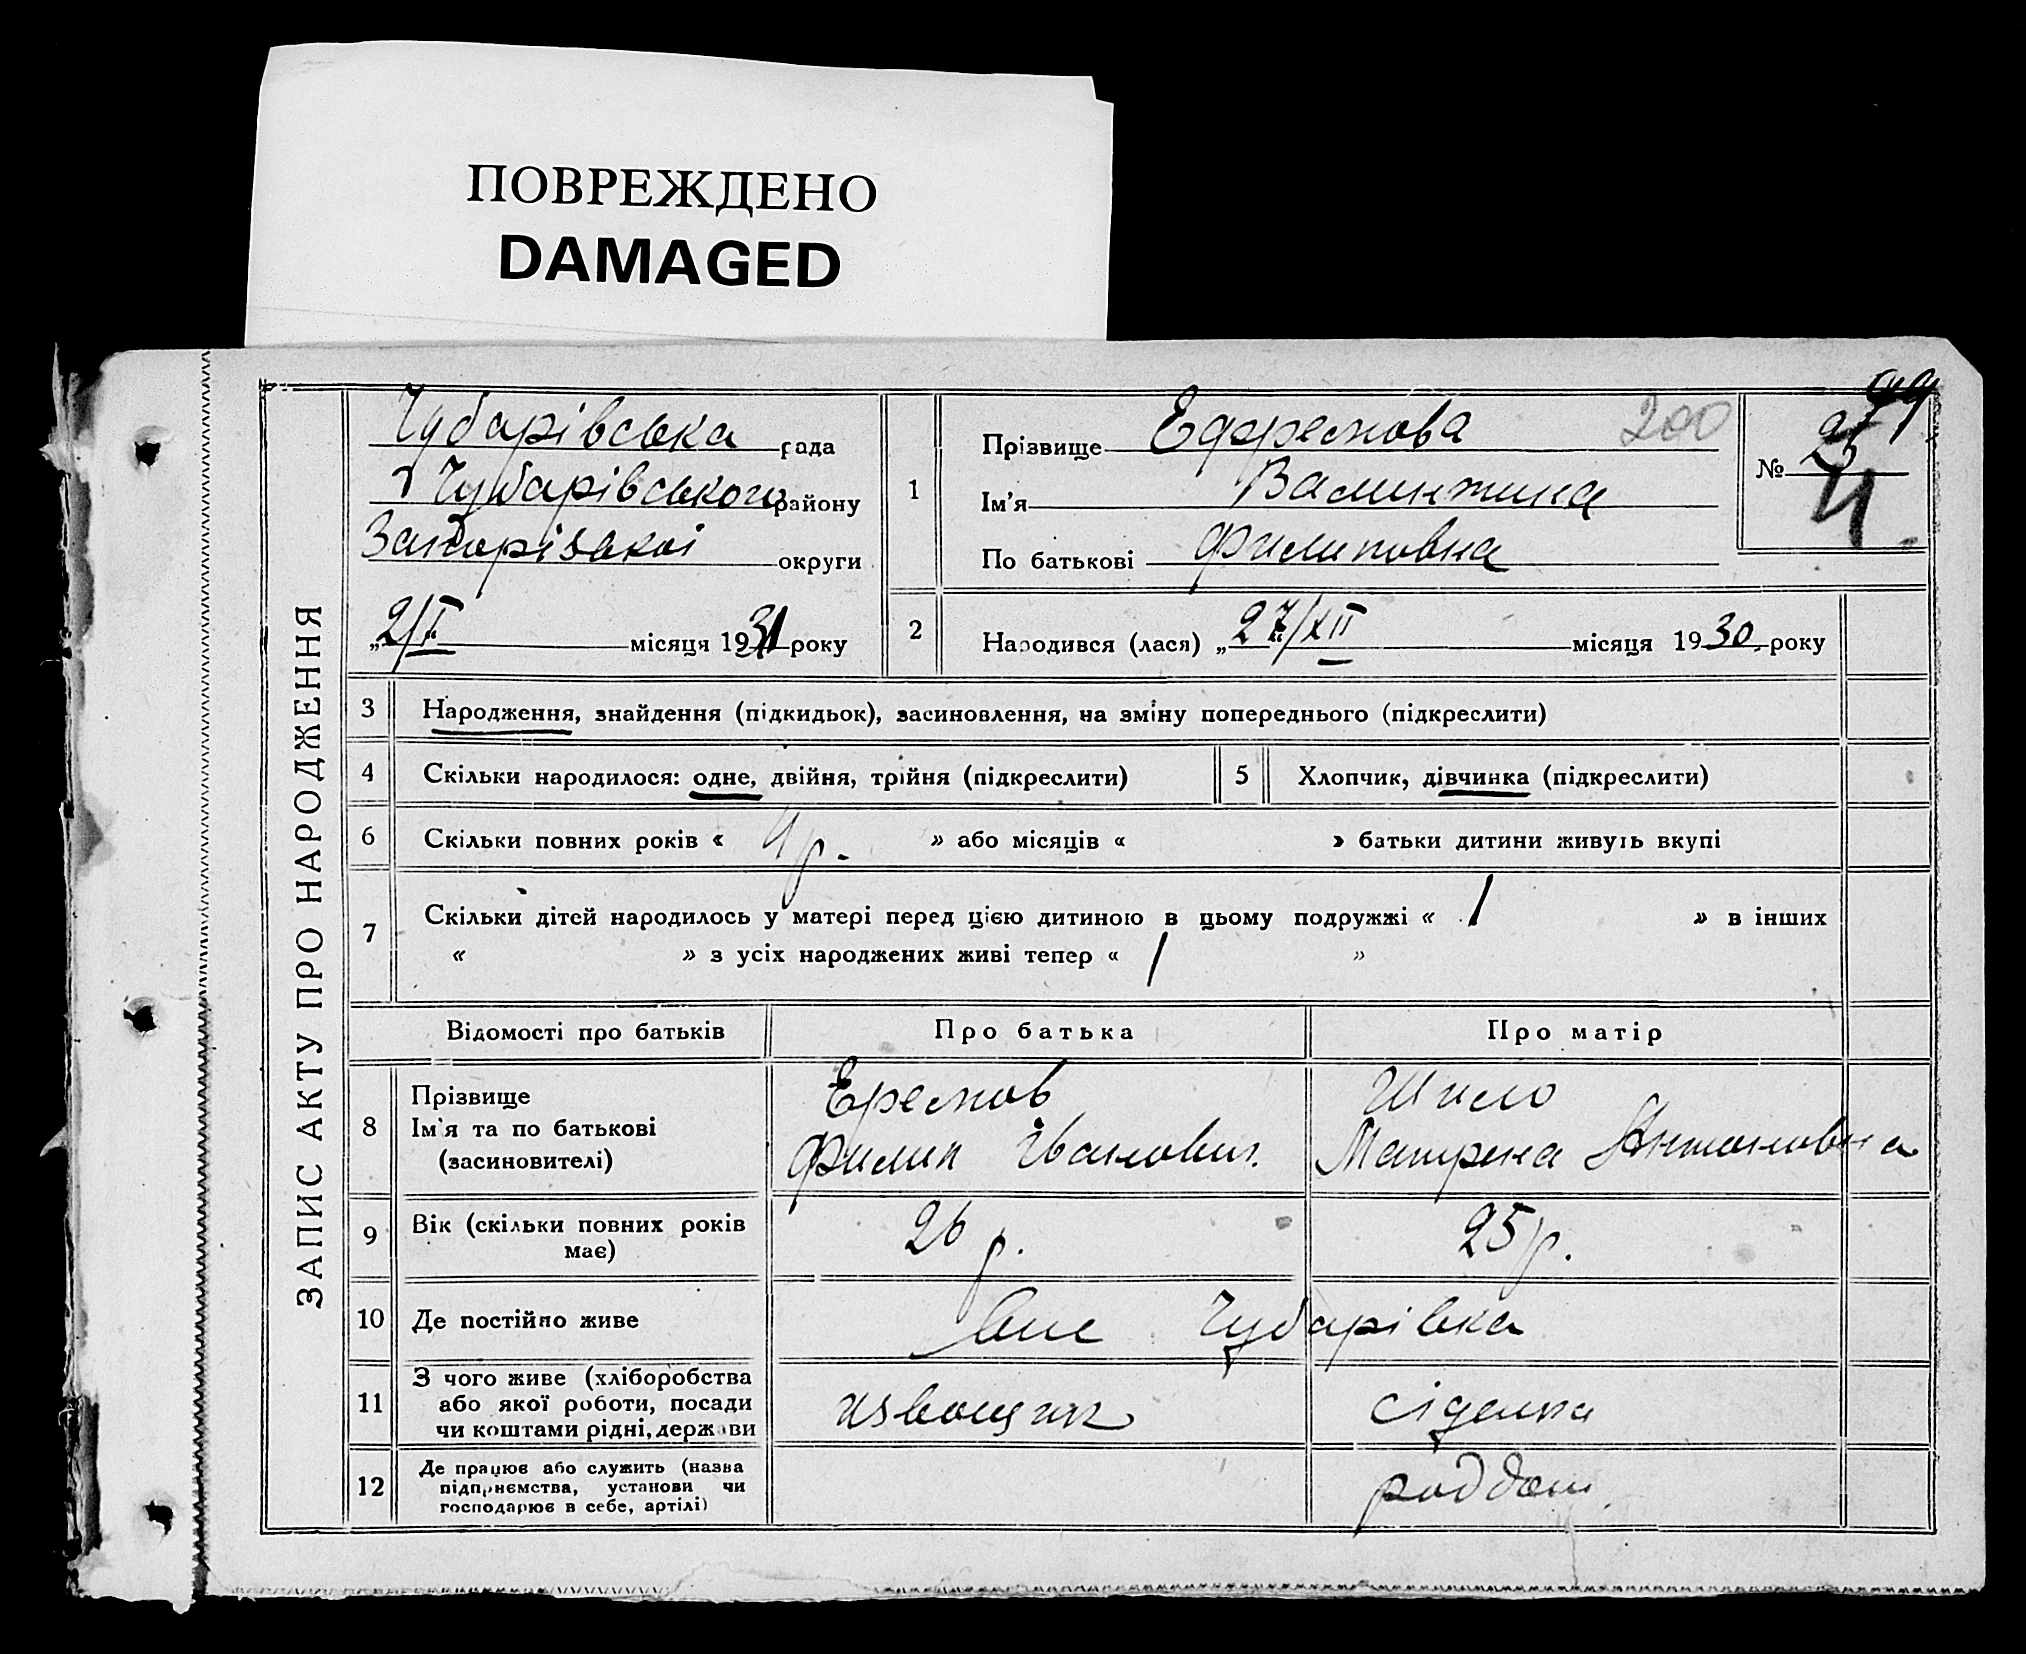 ПОВРЕЖДЕНО
DAMAGED
ЗАПИС АКТУ ПРО НАРОДЖЕННЯ
Чубарівська рада
Чубарівського району
Запорізької округи
„2/II місяця 1931 року
1
Прізвище Ефремова
Ім'я Валинтина
По батькові Филиповна
200
№ 25
4
2
Народився (лася) „27/XII місяця 1930 року
3 Народження, знайдення (підкидьок), засиновлення, на зміну попереднього (підкреслити)
4 Скільки народилося: одне, двійня, трійня (підкреслити)
5 Хлопчик, дівчинка (підкреслити)
6 Скільки повних років « 4 р. » або місяців « » батьки дитини живуть вкупі
7 Скільки дітей народилось у матері перед цією дитиною в цьому подружжі « 1 » в інших
« » з усіх народжених живі тепер « 1 »
Відомості про батьків Про батька Про матір
8 Прізвище
Ім'я та по батькові
(засиновителі)
Ефремов
Филип Іванович
Шило
Матрена Антоновна
9 Вік (скільки повних років
має)
26 р. 25 р.
10 Де постійно живе Чубарівка
11 З чого живе (хліборобства
або якої роботи, посади
чи коштами рідні, держави
извощик сіделка
12 Де працює або служить (назва
підприємства, установи чи
господарює в себе, артілі)
роддом